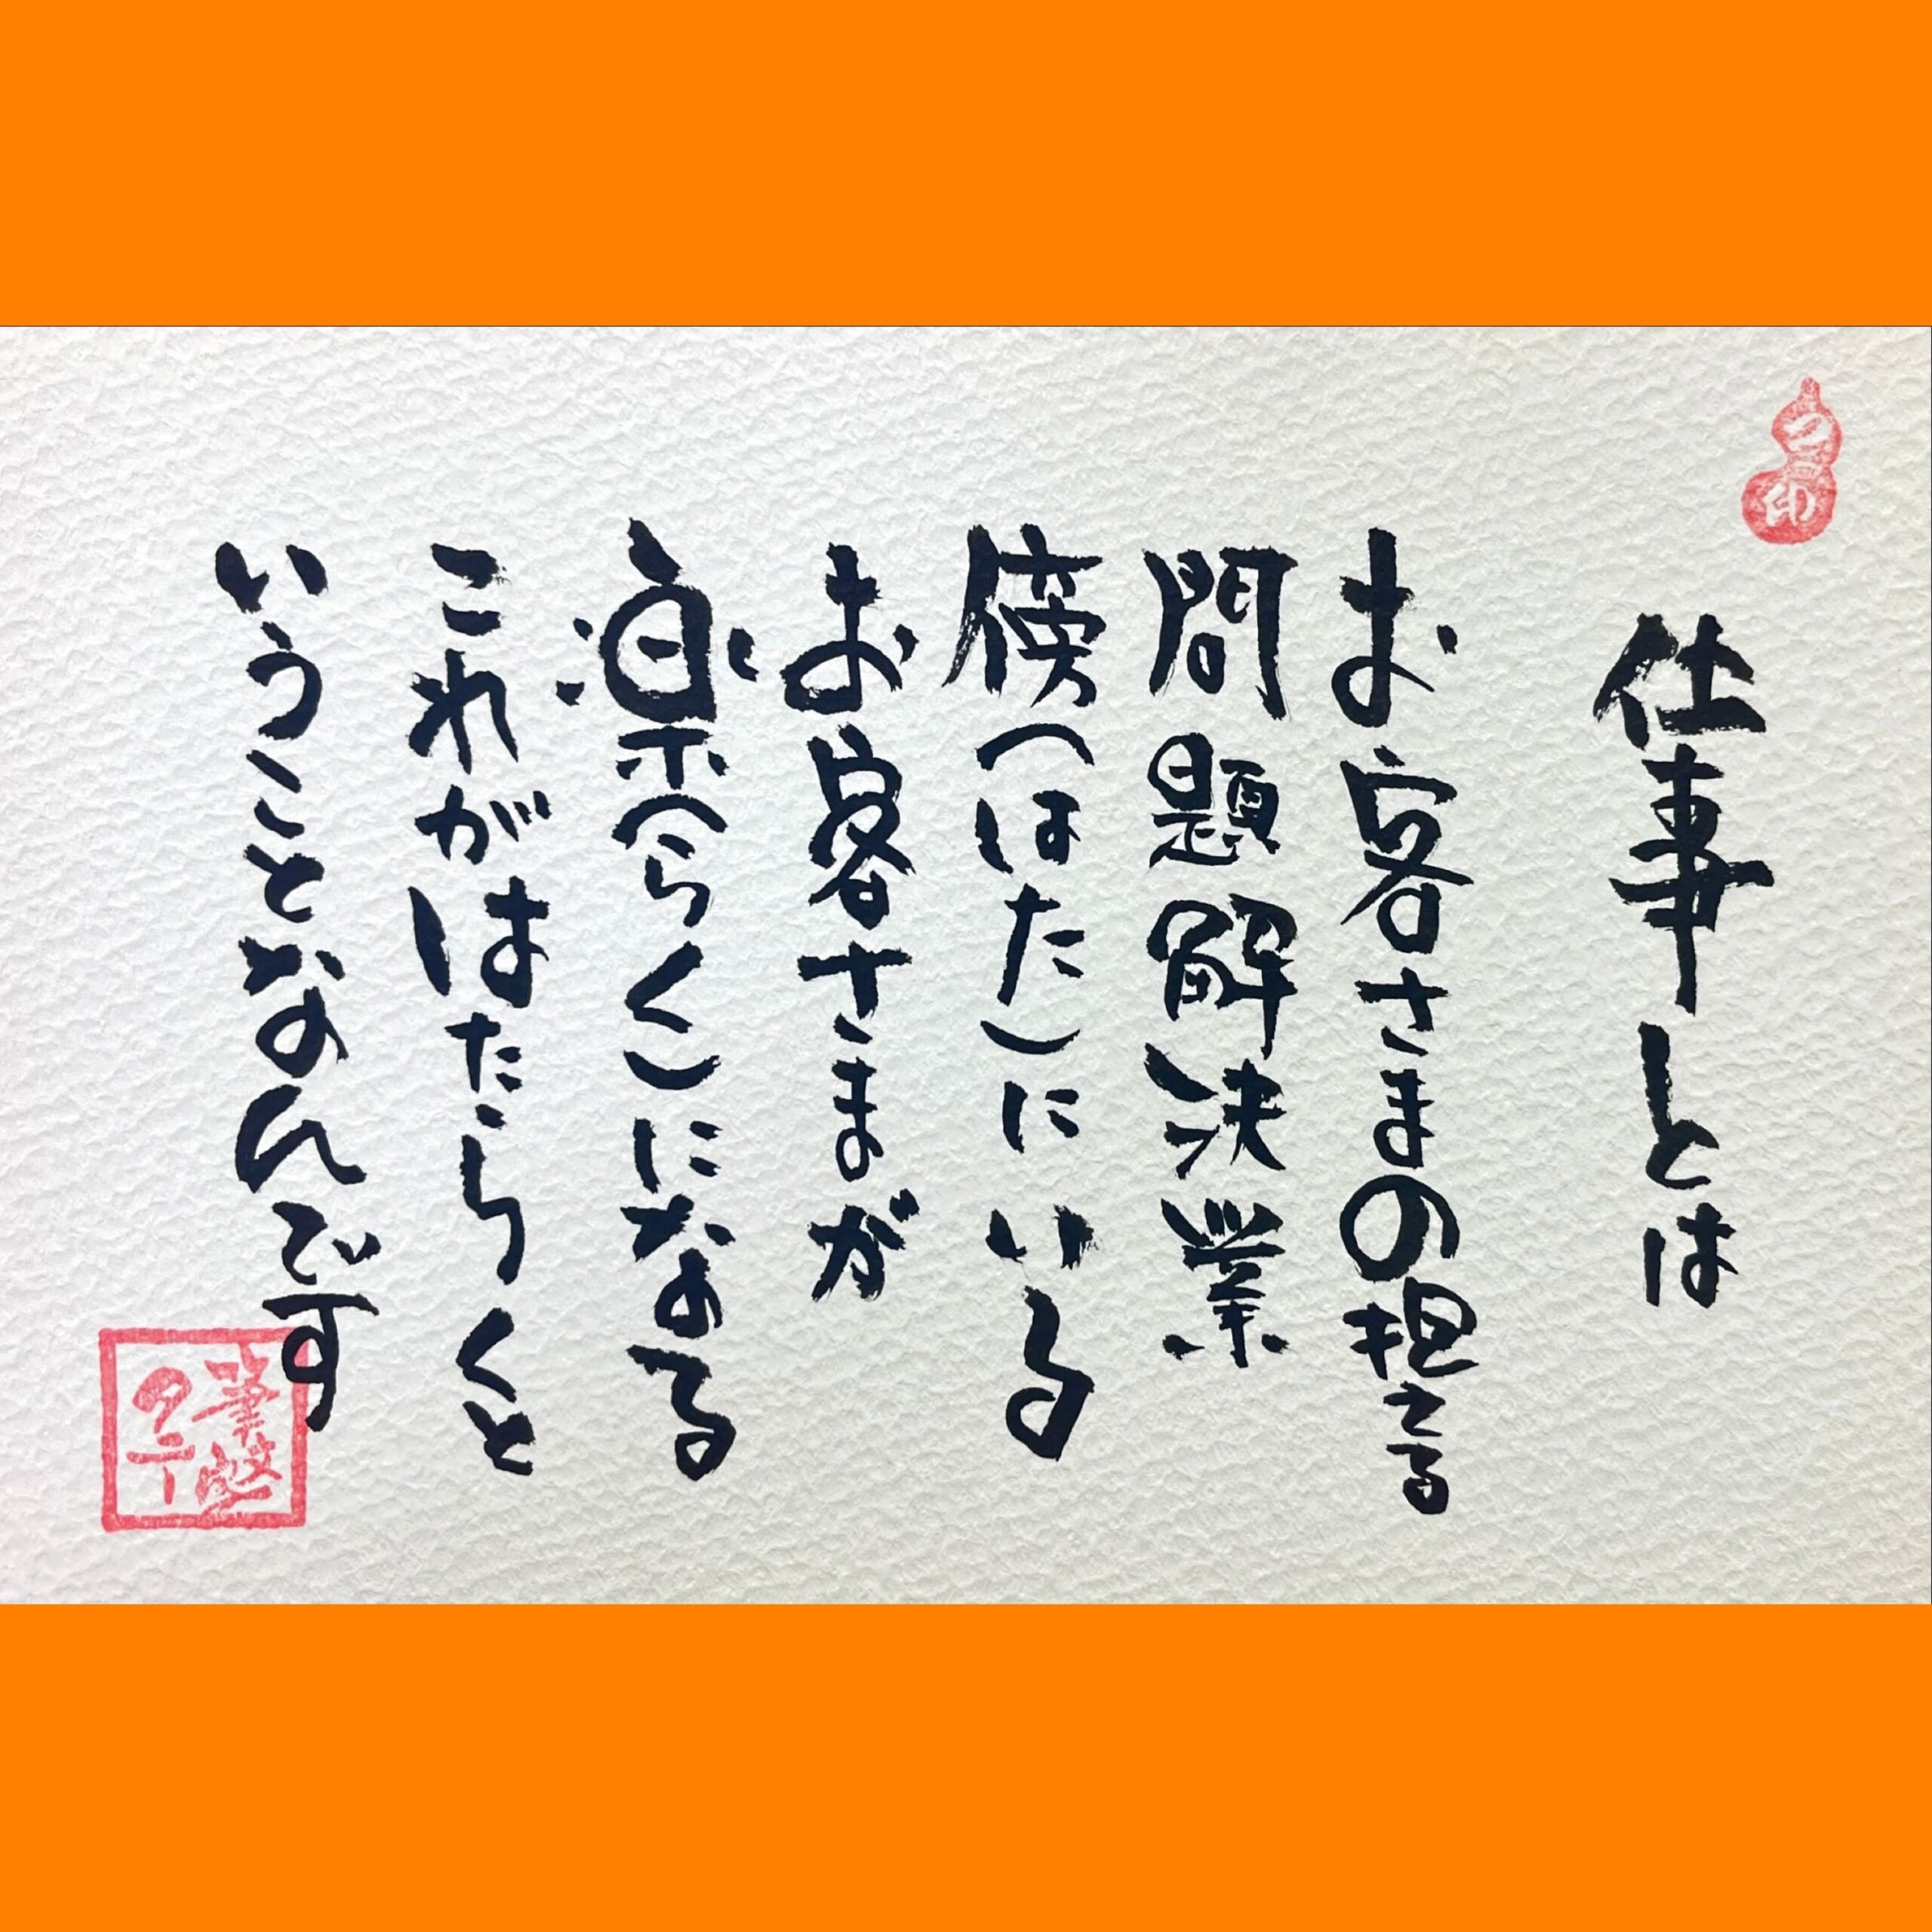 仕事とは
お客さまの抱える
問題解決業
傍(はた)にいる
お客さまが
楽(らく)になる
これがはたらくと
いうことなんです
タニー